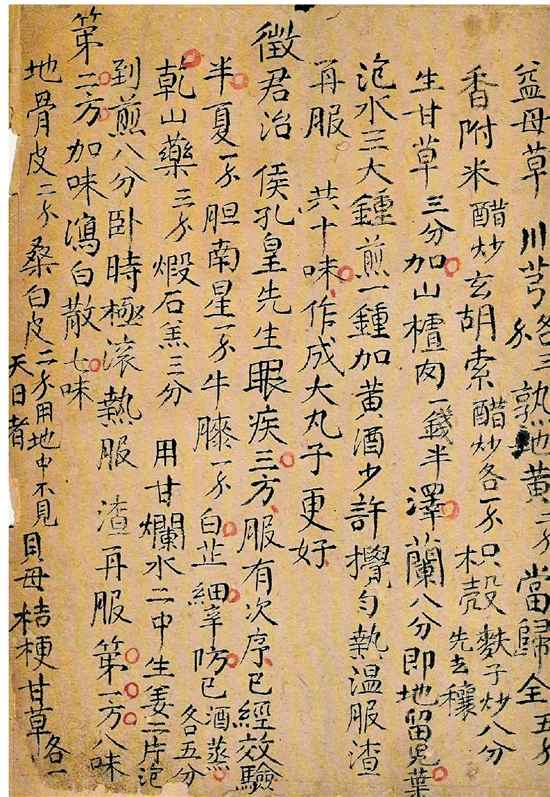 益母草 川芎各三分 熟地黄二分 當歸全五分
香附米醋炒玄胡索醋炒各一分 枳殼麩子炒八分先去穰
生甘草三分加山楂肉一錢半澤蘭八分即地留兒葉
泡水三大鍾煎一鍾加黄酒少許攪勻熱温服渣
再服 共十味作成大丸子更好
徵君治 侯孔皇先生眼疾三方服有次序已經效驗
半夏一分胆南星一分牛膝一分白芷細辛防已酒蒸各五分
乾山藥三分煅石羔三分 用甘爛水二中生姜二片泡
到煎八分卧時極滚熱服 渣再服 第一方八味
第二方加味瀉白散七味
地骨皮二分桑白皮二分用地中不見天日者貝母桔梗甘草各一